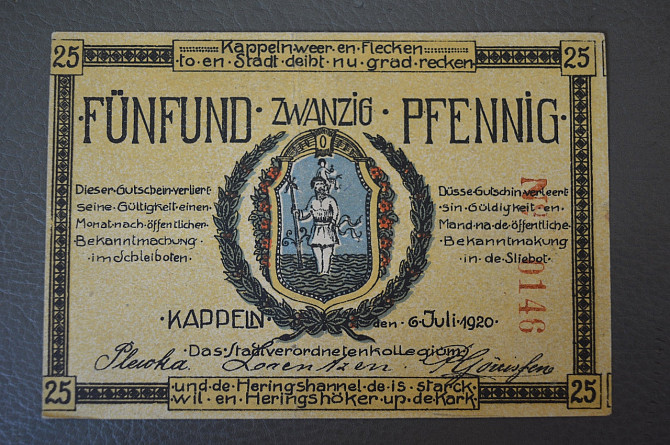 25 Kappeln·weer·en·Flecken 25
·to·en·Stadt·deibt·nu·grad·recken
·FÜNFUND·ZWANZIG·PFENNIG·
Dieser·Gutschein·verliert
seine·Gültigkeit·einen
Monat·nach·öffentlicher
Bekanntmachung
·im·Schleiboten·
Düsse·Gutschin·verleert
sin·Güldigkeit·en·
Mand·na·de·öffentliche·
Bekanntmakung
in·de·Sliebot·
0146
·KAPPELN· den·6·Juli·1920·
·Das·Stadtverordnetenkollegium·
Lorentzen
25 ·und·de·Heringshannel·de·is·starck· 25
wil·en·Heringshöker·up·de·Kark·